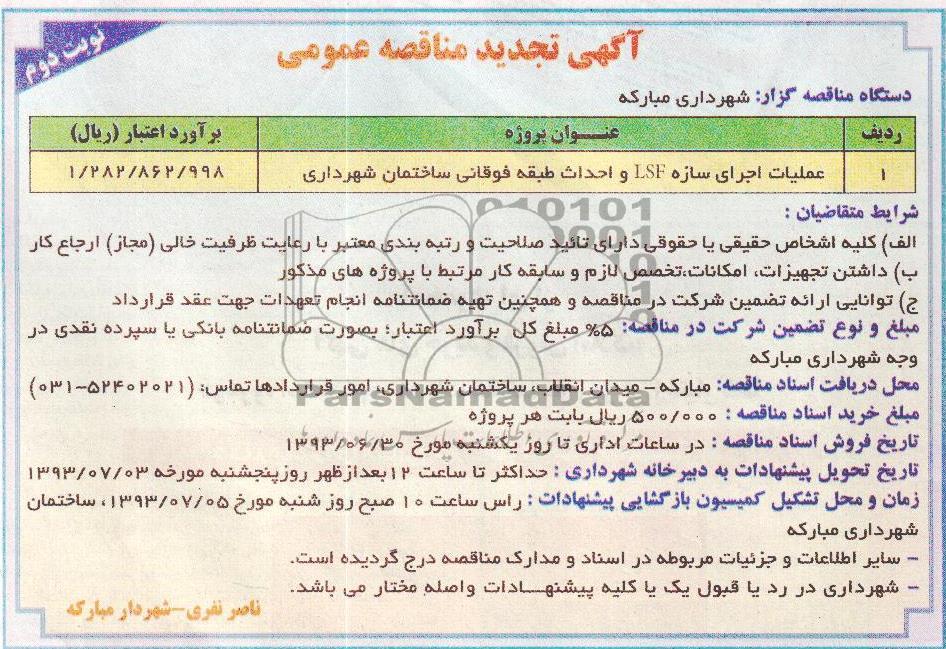 نوبت دوم
آگهی تجدید مناقصه عمومی
دستگاه مناقصه گزار: شهرداری مبارکه
ردیف عنـــوان پروژه برآورد اعتبار (ریال)
۱ عملیات اجرای سازه LSF و احداث طبقه فوقانی ساختمان شهرداری ۱/۲۸۲/۸۶۲/۹۹۸
شرایط متقاضیان :
الف) کلیه اشخاص حقیقی یا حقوقی دارای تائید صلاحیت و رتبه بندی معتبر با رعایت ظرفیت خالی (مجاز) ارجاع کار
ب) داشتن تجهیزات، امکانات،تخصص لازم و سابقه کار مرتبط با پروژه های مذکور
ج) توانایی ارائه تضمین شرکت در مناقصه و همچنین تهیه ضمانتنامه انجام تعهدات جهت عقد قرارداد
مبلغ و نوع تضمین شرکت در مناقصه: ۵% مبلغ کل برآورد اعتبار؛ بصورت ضمانتنامه بانکی یا سپرده نقدی در
وجه شهرداری مبارکه
محل دریافت اسناد مناقصه: مبارکه – میدان انقلاب، ساختمان شهرداری، امور قراردادها تماس: (۵۲۴۰۲۰۲۱-۰۳۱)
مبلغ خرید اسناد مناقصه : ۵۰۰/۰۰۰ ریال بابت هر پروژه
تاریخ فروش اسناد مناقصه : در ساعات اداری تا روز یکشنبه مورخ ۱۳۹۳/۰۶/۳۰
تاریخ تحویل پیشنهادات به دبیرخانه شهرداری : حداکثر تا ساعت ۱۲بعدازظهر روزپنجشنبه مورخه ۱۳۹۳/۰۷/۰۳
زمان و محل تشکیل کمیسیون بازگشایی پیشنهادات : راس ساعت ۱۰ صبح روز شنبه مورخ ۱۳۹۳/۰۷/۰۵، ساختمان
شهرداری مبارکه
– سایر اطلاعات و جزئیات مربوطه در اسناد و مدارک مناقصه درج گردیده است.
– شهرداری در رد یا قبول یک یا کلیه پیشنهـــادات واصله مختار می باشد.
ناصر نفری–شهردار مبارکه
ParsNamadData